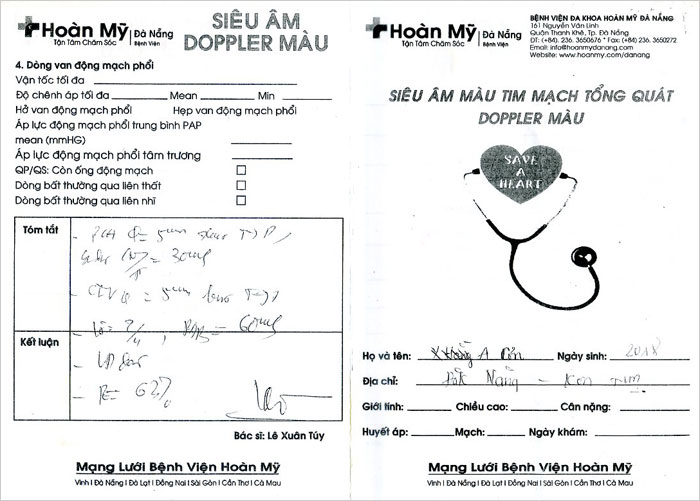 Hoàn Mỹ Đà Nẵng
Tận Tâm Chăm Sóc Bệnh Viện
SIÊU ÂM
DOPPLER MÀU
4. Dòng van động mạch phổi
Vận tốc tối đa
Độ chênh áp tối đa Mean Min
Hở van động mạch phổi Hẹp van động mạch phổi
Áp lực động mạch phổi trung bình PAP
mean (mmHG)
Áp lực động mạch phổi tâm trương
QP/QS: Còn ống động mạch
Dòng bất thường qua liên thất
Dòng bất thường qua liên nhĩ
Tóm tắt
Kết luận
62%
Bác sĩ: Lê Xuân Túy
Mạng Lưới Bệnh Viện Hoàn Mỹ
Vinh | Đà Nẵng | Đà Lạt | Đồng Nai | Sài Gòn | Cần Thơ | Cà Mau
Hoàn Mỹ Đà Nẵng
Tận Tâm Chăm Sóc Bệnh Viện
BỆNH VIỆN ĐA KHOA HOÀN MỸ ĐÀ NẴNG
161 Nguyễn Văn Linh
Quận Thanh Khê, Tp. Đà Nẵng
ĐT: (+84). 236. 3650676 * Fax: (+84) 236. 3650272
Email: info@hoanmydanang.com
Website: www.hoanmy.com/danang
SIÊU ÂM MÀU TIM MẠCH TỔNG QUÁT
DOPPLER MÀU
SAVE
A
HEART
Họ và tên: A Ngày sinh: 2018
Địa chỉ: Đăk Năng - Kon Tum
Giới tính: Chiều cao: Cân nặng:
Huyết áp: Mạch: Ngày khám:
Mạng Lưới Bệnh Viện Hoàn Mỹ
Vinh | Đà Nẵng | Đà Lạt | Đồng Nai | Sài Gòn | Cần Thơ | Cà Mau